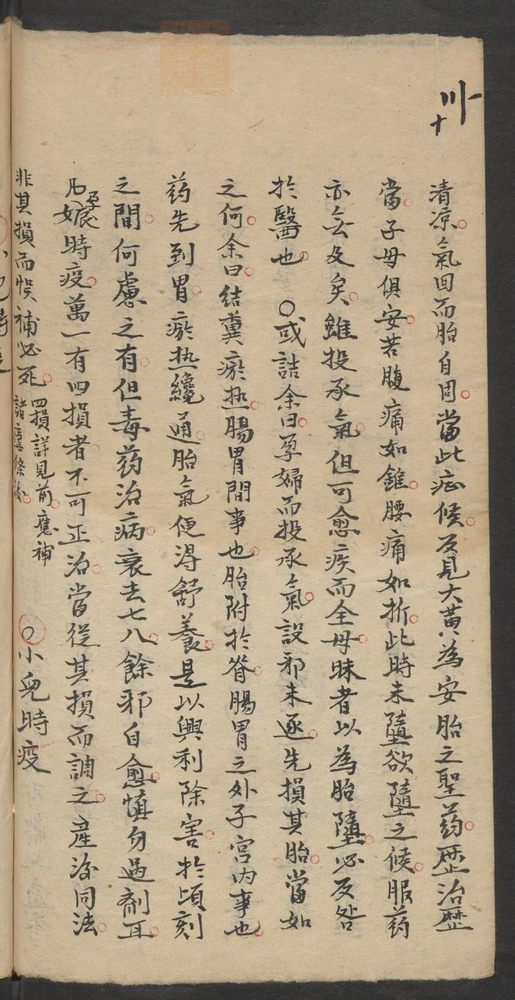 卅
十
清凉氣回而胎自固當此症候反見大黄為安胎之聖葯歷治歷
當子母俱安若腹痛如錐腰痛如折此時未墮欲墮之候服葯
亦無及矣雖投承氣但可愈疾而全母昧者以為胎墮必反咎
於醫也○或詰余曰孕婦而投承氣設邪未逐先損其胎當如
之何余曰結糞瘀热腸胃間事也胎附於脊腸胃之外子宮内事也
葯先到胃瘀热纔通胎氣便淂舒養是以興利除害於頃刻
之間何慮之有但毒葯治病衰去七八餘邪自愈慎勿過剤耳
凡孕娠時疫萬一有四損者不可正治當從其損而調之產後同法
非其損而悞補必死四損詳見前應補諸虛條後○小兒時疫